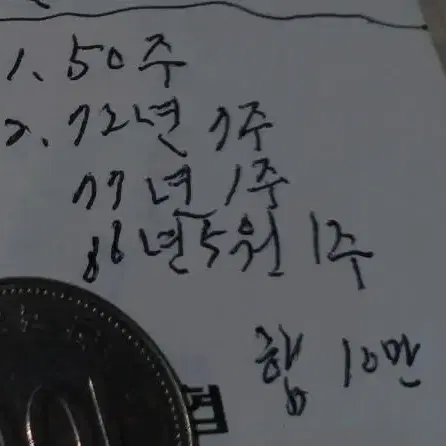 1. 50주
2. 72년 7주
77년 1주
86년 5원 1주
합 10만